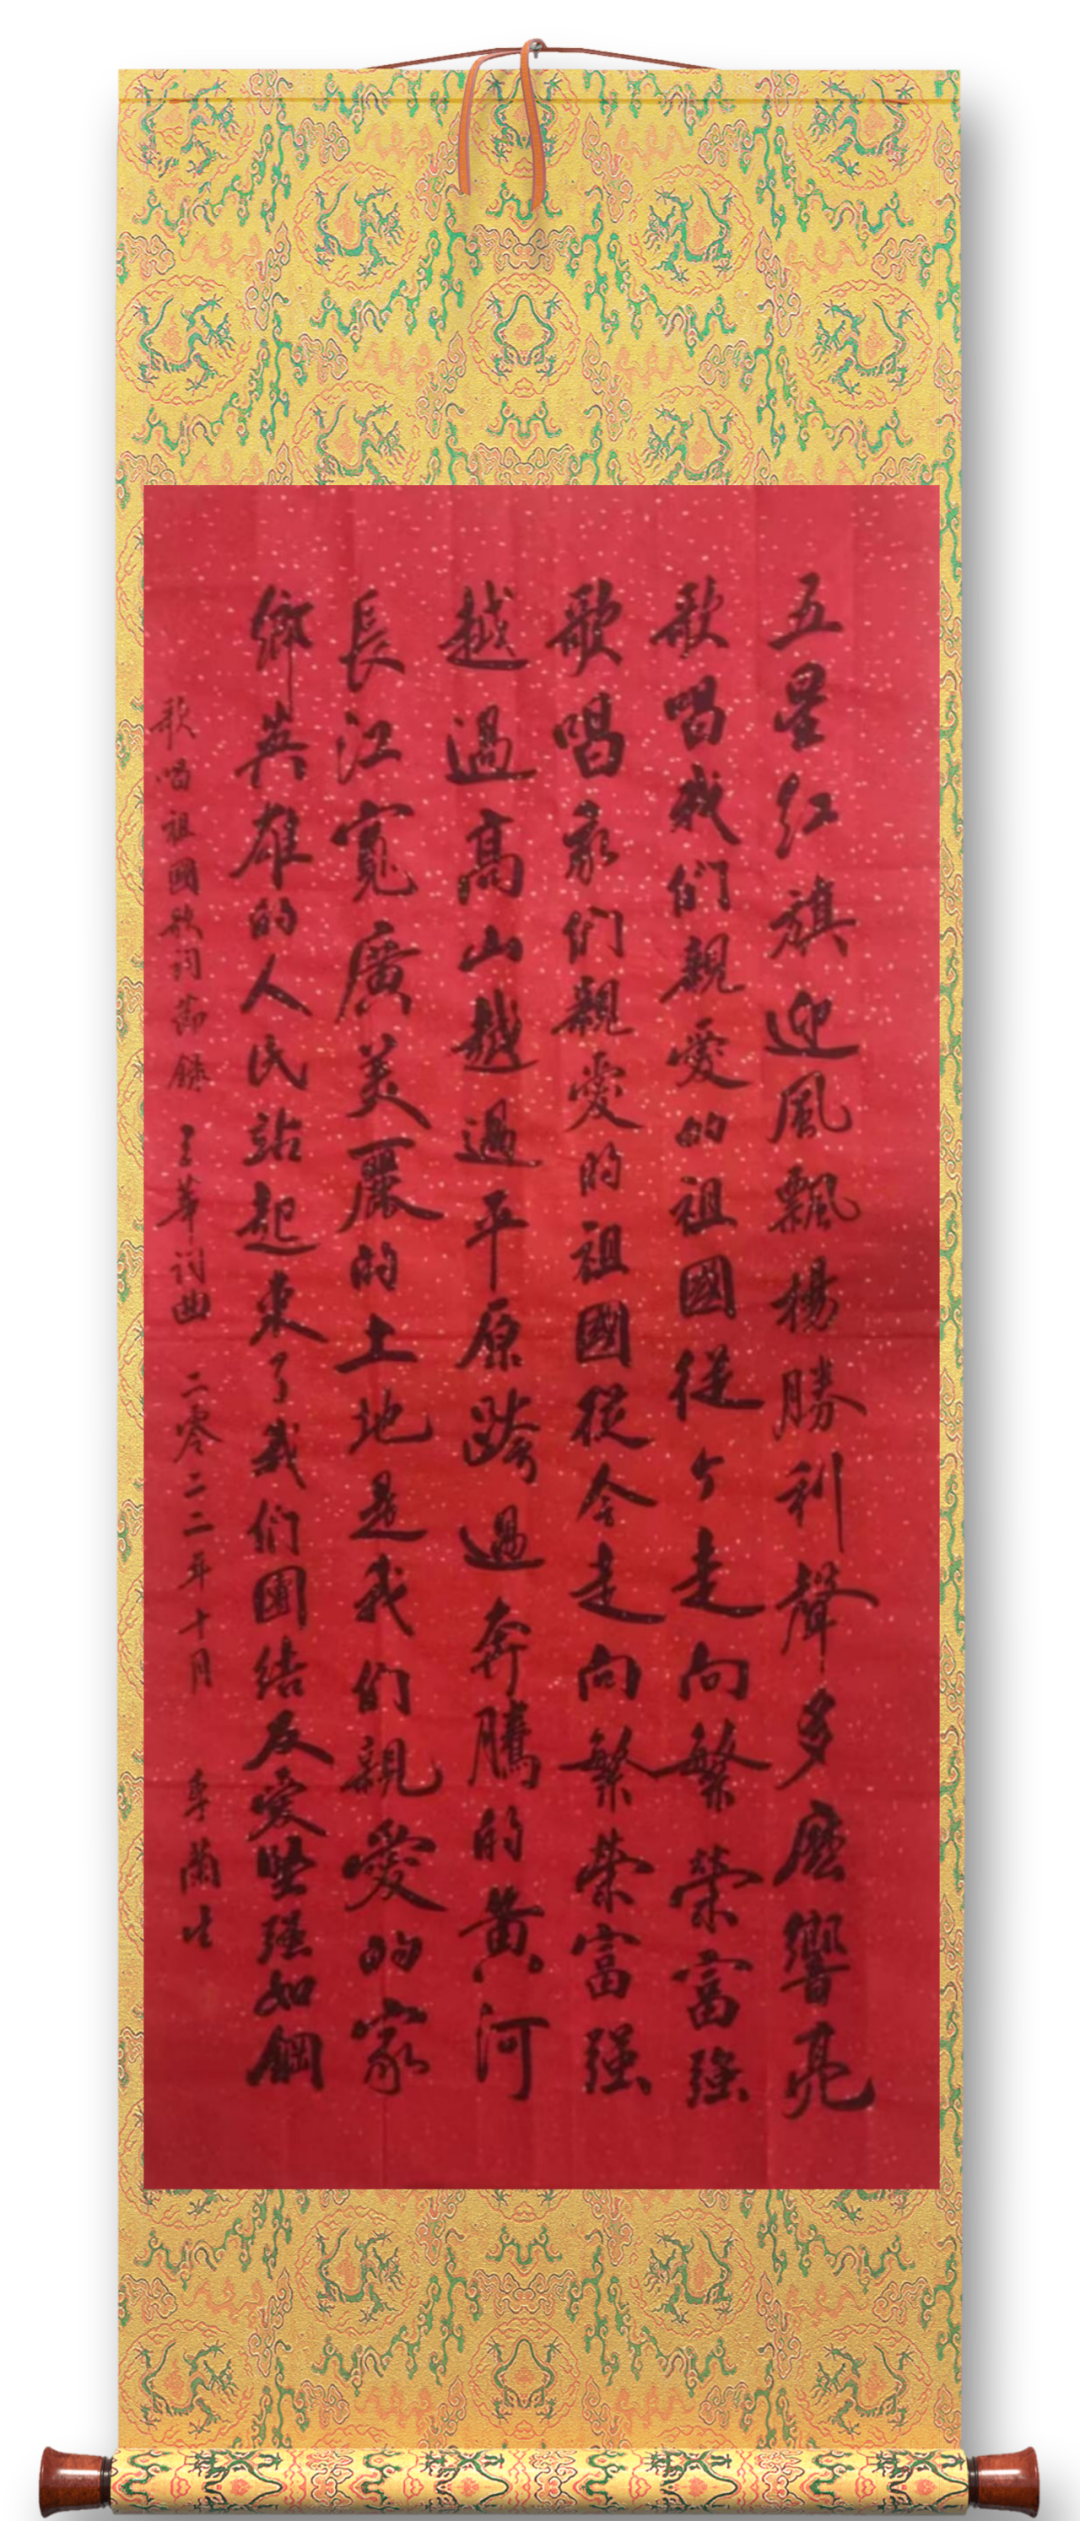 五星红旗迎風飄楊勝利聲多麽響亮
歌唱我们親愛的祖國從今走向繁榮富强
歌唱我们親愛的祖國從今走向繁榮富强
越過高山越過平原跨過奔騰的黄河
長江寬廣美麗的土地是我们親愛的家
鄉英雄的人民站起來了我们團结友愛坚强如鋼
歌唱祖國歌詞節録 王莘词曲 二零二二年十月 李蘭生